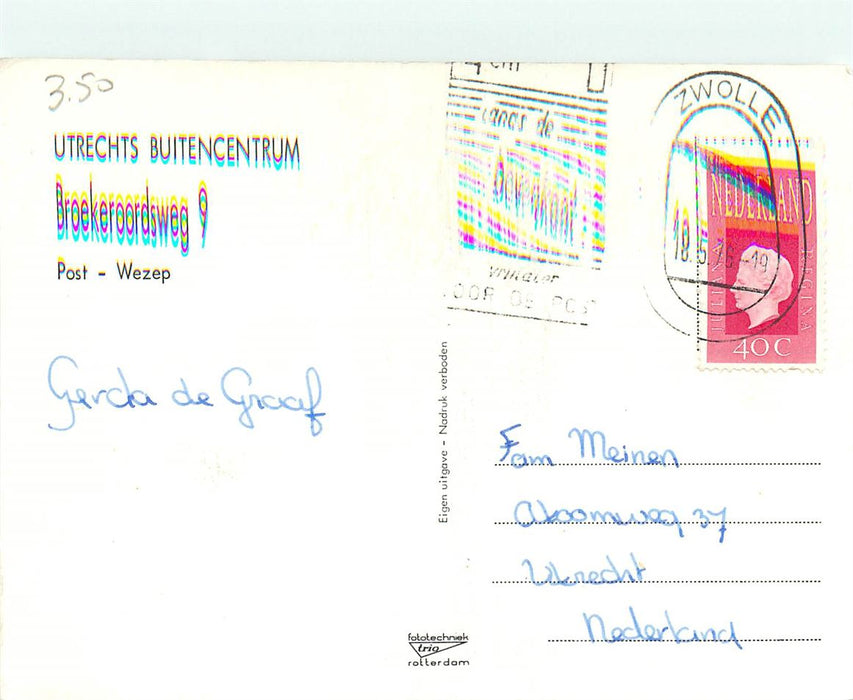 3.50
UTRECHTS BUITENCENTRUM
Broekeroordsweg 9
Post - Wezep
Gerda de Graaf
4 cm
langs de
bovenkant
vrijhouden
VOOR DE POST
ZWOLLE
18.5.76-19
NEDERLAND
JULIANA REGINA
40C
Eigen uitgave - Nadruk verboden
Fam Meinen
37
Utrecht
Nederland
fototechniek
trio
rotterdam